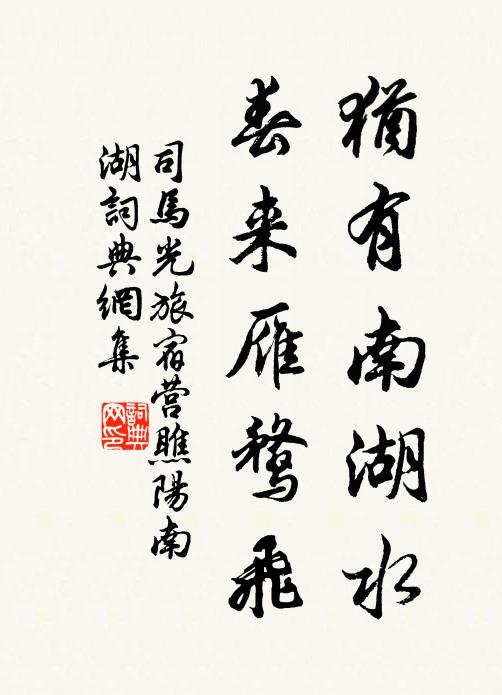 猶有南湖水
春来雁鶩飛
司馬光旅宿营瞧陽南
湖詞典網集
詞典
网印